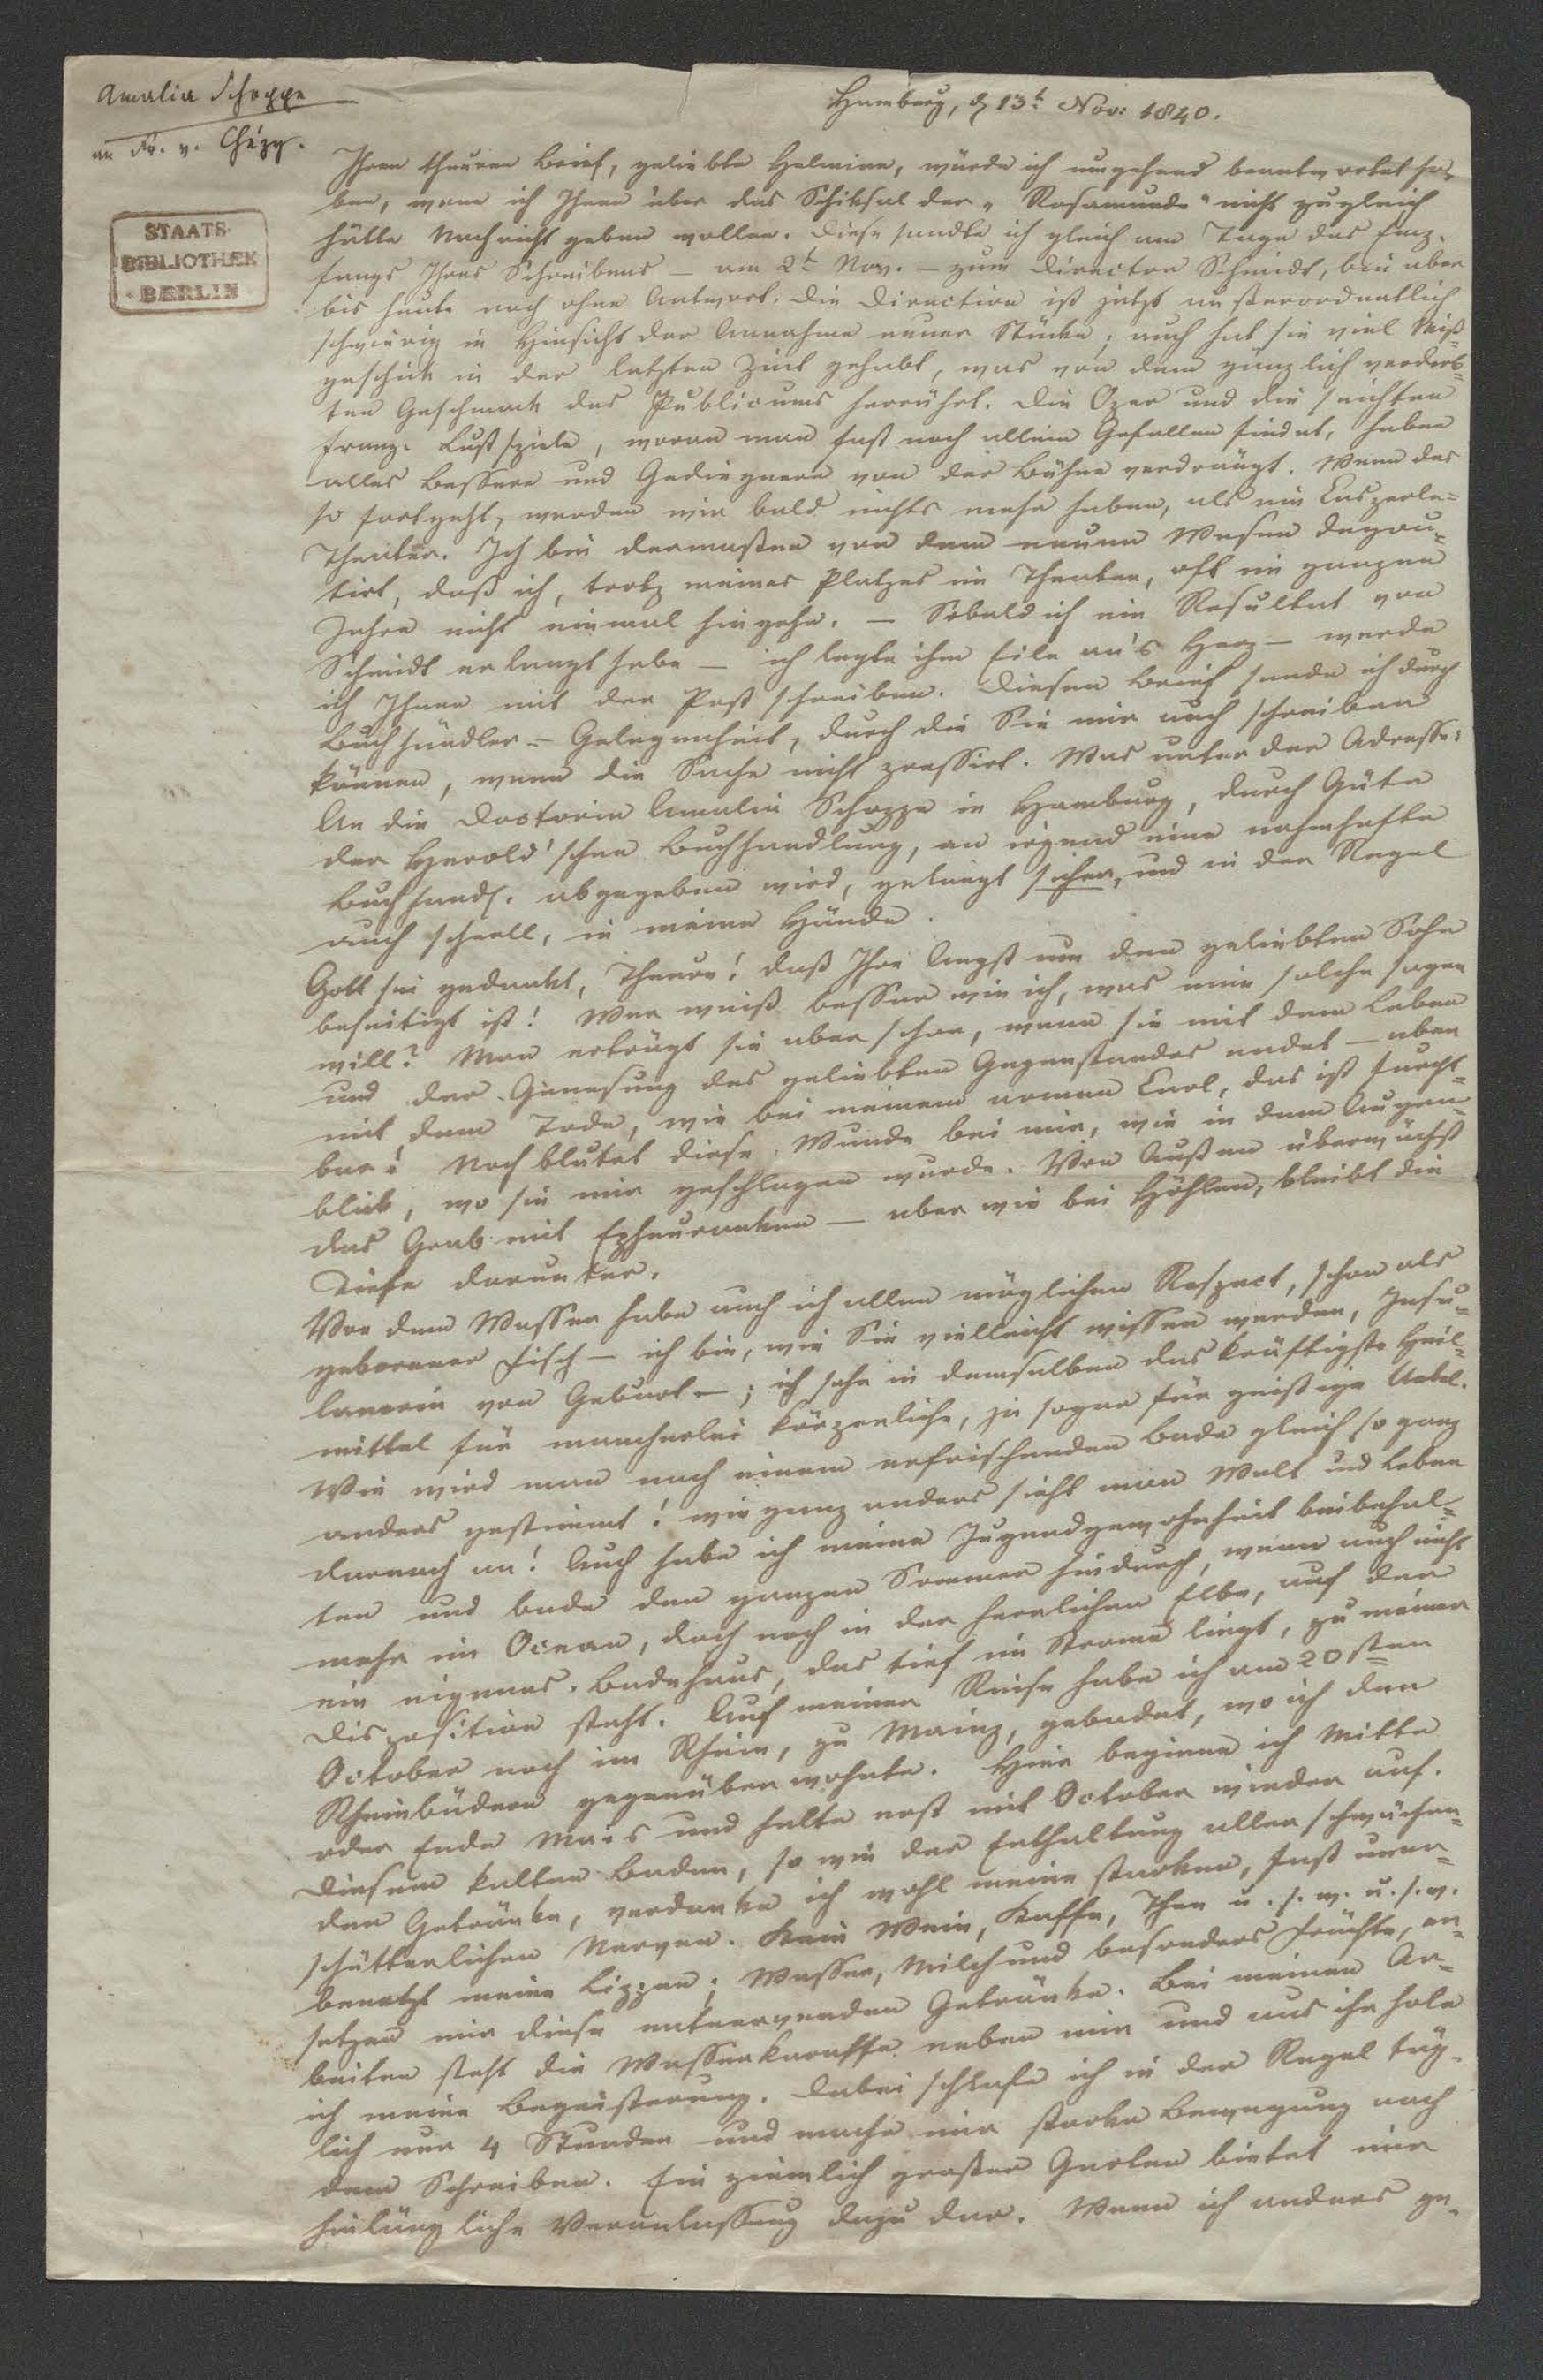 Amalia Schoppe
an Fr. v. Chézy.
STAATS-
BIBLIOTHEK
BERLIN
Hamburg, d 13t Nov: 1840.
Ihren theuren Brief, geliebte Helmina, würde ich umgehend beantwortet ha-
ben, wenn ich Ihnen über das Schiksal der „Rosamunde“ nicht zugleich
hätte Nachricht geben wollen. Diese sandte ich gleich am Tage des Emp-
fangs Ihres Schreibens — am 2t Nov. — zum Director Schmidt, bin aber
bis heute noch ohne Antwort. Die Direction ist jetzt außerordentlich
schwierig in Hinsicht der Annahme neuer Stücke; auch hat sie viel Miß-
geschick in der letzten Zeit gehabt, was von dem gänzlich verderb-
ten Geschmack des Publicums herrührt. Die Oper und die seichten
franz. Lustspiele, woran man fast noch allein Gefallen findet, haben
alles Bessere und Gediegnere von der Bühne verdrängt. Wenn das
so fortgeht, werden wir bald nichts mehr haben, als ein Casperle-
Theater. Ich bin dermaßen von dem neuen Wesen degou-
tirt, daß ich, trotz meines Platzes im Theater, oft im ganzen
Jahre nicht einmal hingehe. — Sobald ich ein Resultat von
Schmidt erlangt habe — ich legte ihm Eile an's Herz — werde
ich Ihnen mit der Post schreiben. Diesen Brief sende ich durch
Buchhändler-Gelegenheit, durch die Sie mir auch schreiben
können, wenn die Sache nicht pressirt. Was unter der Adresse:
An die Doctorin Amalia Schoppe in Hamburg, durch Güte
der Herold'schen Buchhandlung, an irgend eine nahmhafte
Buchhandl. abgegeben wird, gelangt sicher, und in der Regel
auch schnell, in meine Hände.
Gott sei gedankt, Theure! daß Ihre Angst um den geliebten Sohn
beseitigt ist! Wer weiß besser wie ich, was eine solche sagen
will? Man erträgt sie aber schon, wenn sie mit dem Leben
und der Genesung des geliebten Gegenstandes endet — aber
mit dem Tode, wie bei meinem armen Carl, das ist furcht-
bar! Noch blutet diese Wunde bei mir, wie in dem Augen-
blick, wo sie mir geschlagen wurde. Von Außen überwächst
das Grab mit Epheuranken — aber wie bei Höhlen, bleibt die
Tiefe darunter.
Vor dem Wasser habe auch ich allen möglichen Respect, schon als
geborener Fisch — ich bin, wie Sie vielleicht wissen werden, Insu-
lanerin von Geburt —; ich sehe in demselben das kräftigste Heil-
mittel für mancherlei körperliche, ja sogar für geistige Uebel.
Wie wird man nach einem erfrischenden Bade gleich so ganz
anders gestimmt! wie ganz anders sieht man Welt und Leben
darnach an! Auch habe ich meine Jugendgewohnheit beibehal-
ten und bade den ganzen Sommer hindurch, wenn auch nicht
mehr im Ocean, doch noch in der herrlichen Elbe, auf der
ein eigenes Badehaus, das tief im Strome liegt, zu meiner
Disposition steht. Auf meiner Reise habe ich am 20sten
October noch im Rhein, zu Mainz, gebadet, wo ich den
Rheinbädern gegenüber wohnte. Hier beginne ich Mitte
oder Ende Mais und halte erst mit October wieder auf.
Diesem kalten Baden, so wie der Enthaltung aller schwächen-
den Getränke, verdanke ich wohl meine starken, fast uner-
schütterlichen Nerven. Kein Wein, Kaffe, Thee u. s. w. u. s. w.
benetzt meine Lippen; Wasser, Milch und besonders Früchte, er-
setzen mir diese entnervenden Getränke. Bei meinen Ar-
beiten steht die Wasserkaraffe neben mir und aus ihr hole
ich meine Begeisterung. Dabei schlafe ich in der Regel täg-
lich nur 4 Stunden und mache mir starke Bewegung nach
dem Schreiben. Ein ziemlich großer Garten bietet mir
hinlängliche Veranlassung dazu dar. Wenn ich anders ge-